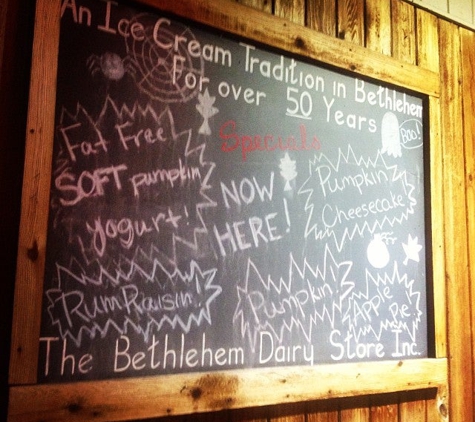 An Ice Cream Tradition in Bethlehem
For over 50 Years
Specials
Fat Free
SOFT pumpkin
yogurt!
NOW
HERE!
Pumpkin
Cheesecake
BOO!
Rum Raisin!
Pumpkin!
Apple
Pie!
The Bethlehem Dairy Store Inc.